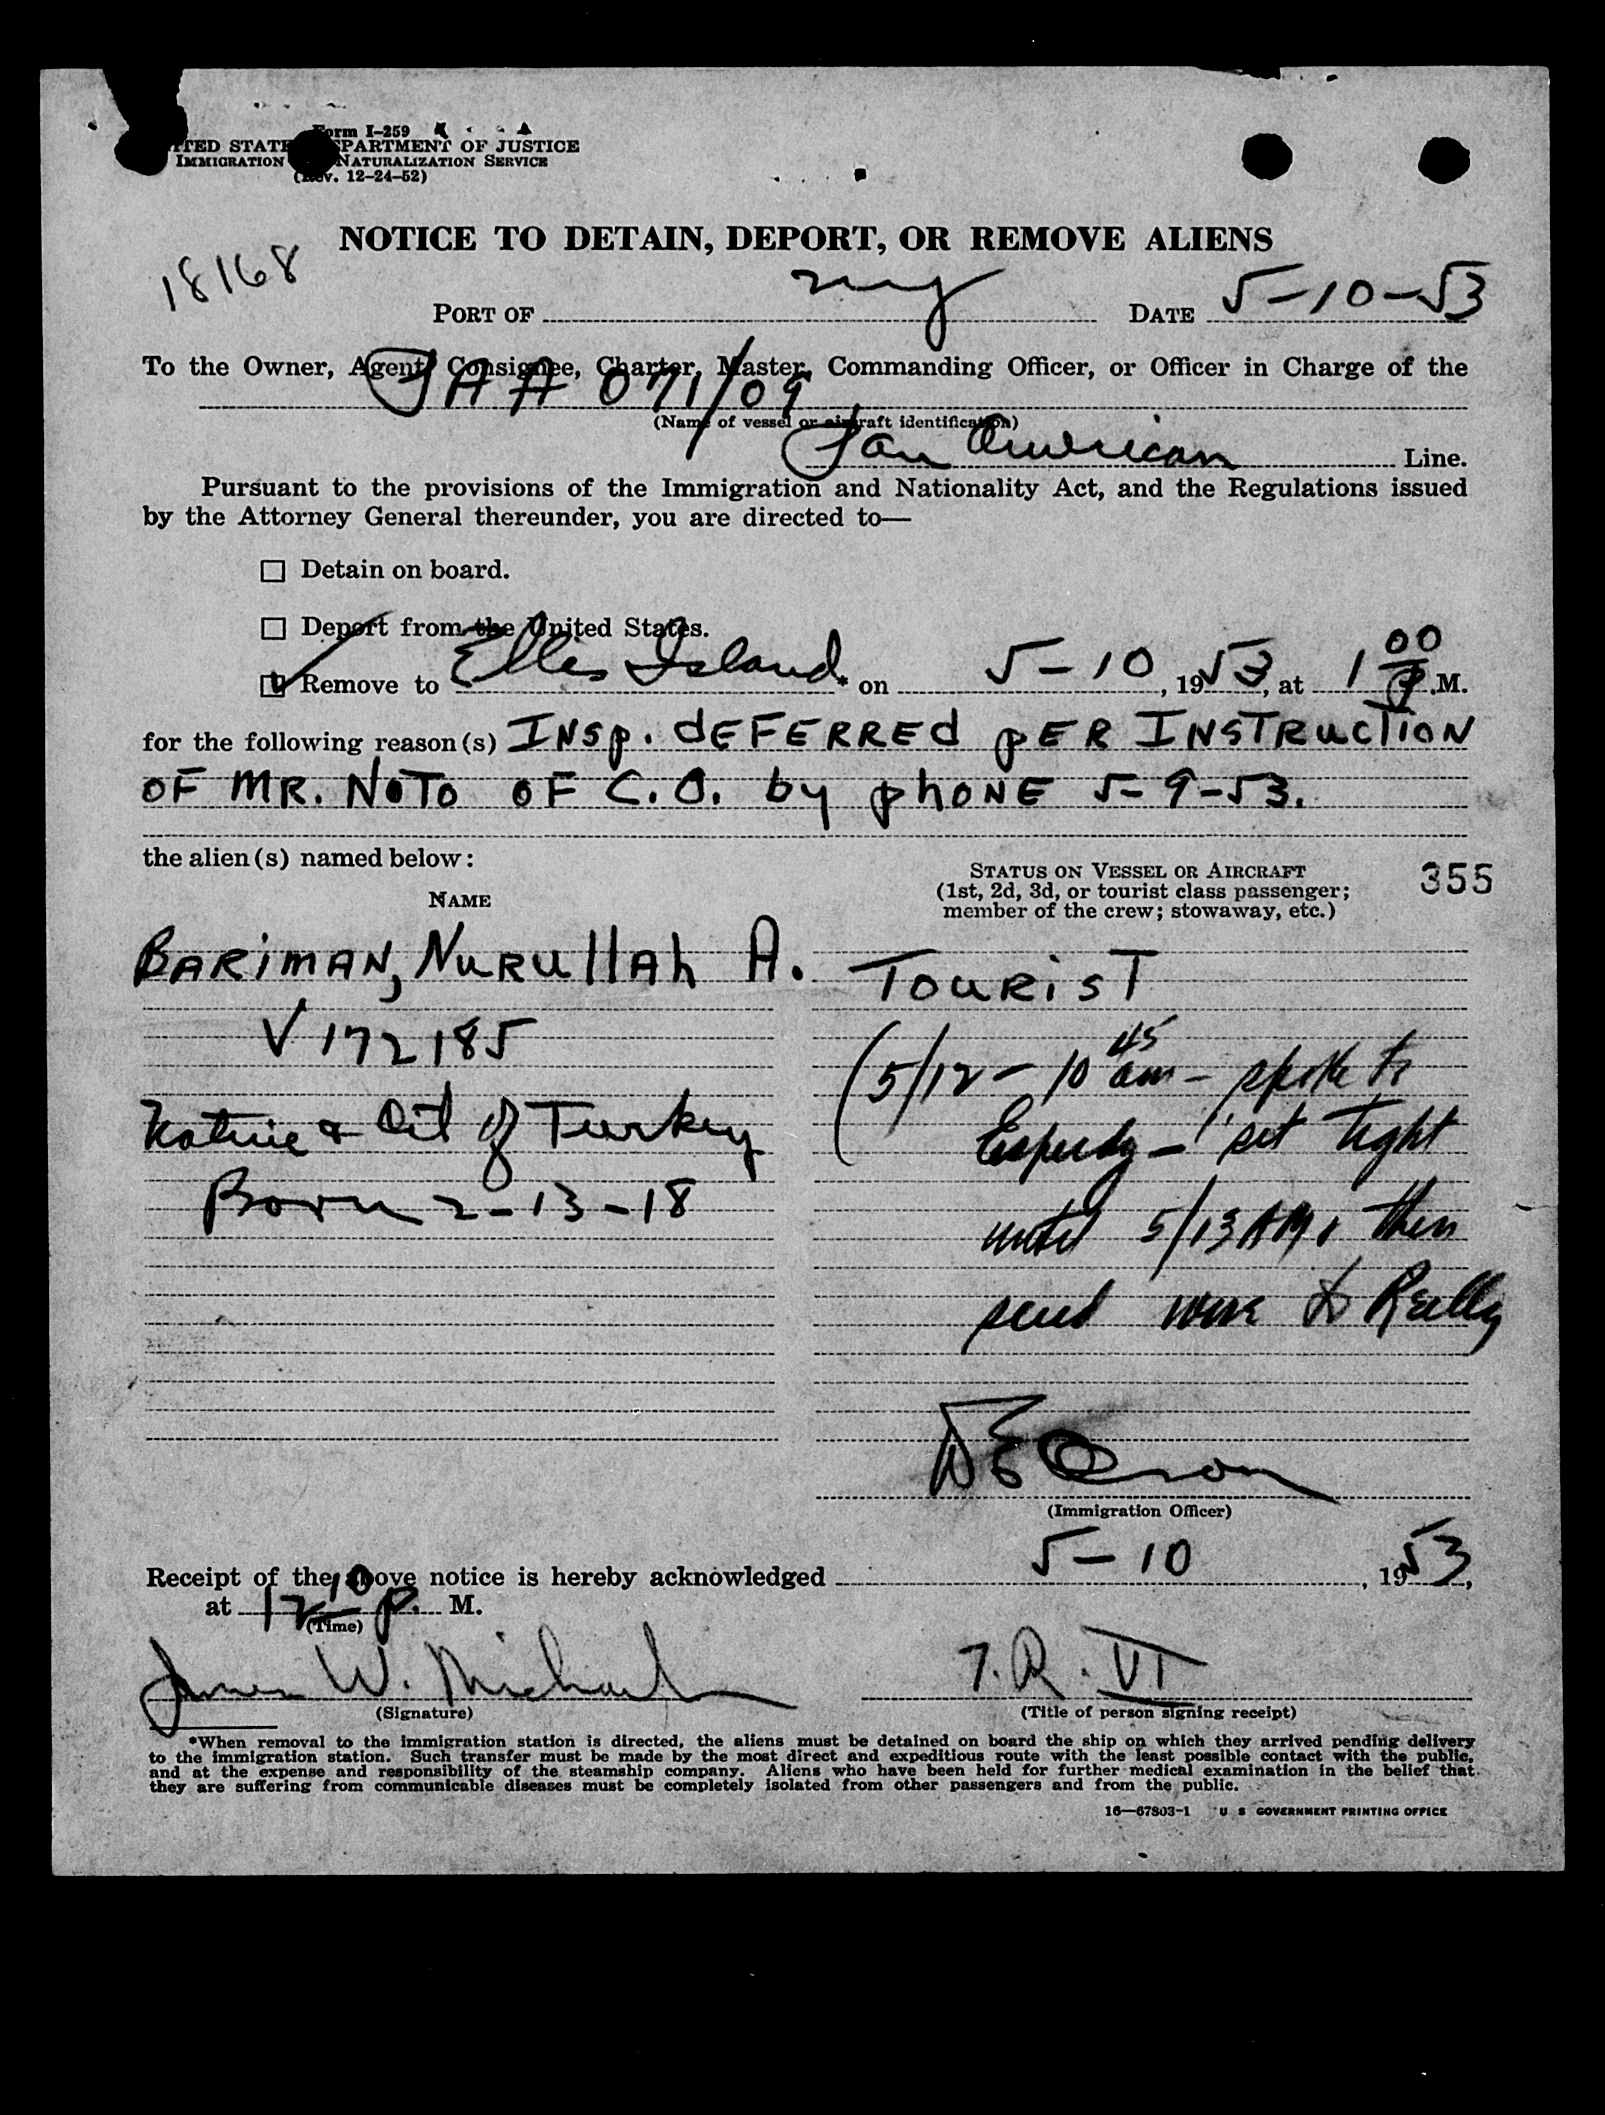 Form I-259
UNITED STATES DEPARTMENT OF JUSTICE
IMMIGRATION NATURALIZATION SERVICE
(Rev. 12-24-52)
NOTICE TO DETAIN, DEPORT, OR REMOVE ALIENS
18168
PORT OF NY DATE 5-10-53
To the Owner, Agent, Consignee, Charter, Master, Commanding Officer, or Officer in Charge of the
PAA 071/09
(Name of vessel or aircraft identification)
Pan American Line.
Pursuant to the provisions of the Immigration and Nationality Act, and the Regulations issued
by the Attorney General thereunder, you are directed to—
☐ Detain on board.
☐ Deport from the United States.
☑ Remove to Ellis Island* on 5-10, 1953, at 1 00 P.M.
for the following reason(s) INSP. dEFERREd pER INSTRucTION
OF MR. NOTO OF C.O. by phONE 5-9-53.
the alien(s) named below:
NAME
STATUS ON VESSEL OR AIRCRAFT
(1st, 2d, 3d, or tourist class passenger;
member of the crew; stowaway, etc.)
355
BARiMAN, NuRullAh A. TouRisT
V 172185
(5/12 - 10 45 am - spoke to
Native & Cit of Turkey
Esperdy - set tight
Born 2-13-18
until 5/13 AM, then
send wire to Reilly
(Immigration Officer)
Receipt of the above notice is hereby acknowledged 5-10, 1953,
at 12 10 P. M.
(Time)
James W.
(Signature)
T.R. VI
(Title of person signing receipt)
*When removal to the immigration station is directed, the aliens must be detained on board the ship on which they arrived pending delivery
to the immigration station. Such transfer must be made by the most direct and expeditious route with the least possible contact with the public,
and at the expense and responsibility of the steamship company. Aliens who have been held for further medical examination in the belief that
they are suffering from communicable diseases must be completely isolated from other passengers and from the public.
16—67803-1 U S GOVERNMENT PRINTING OFFICE